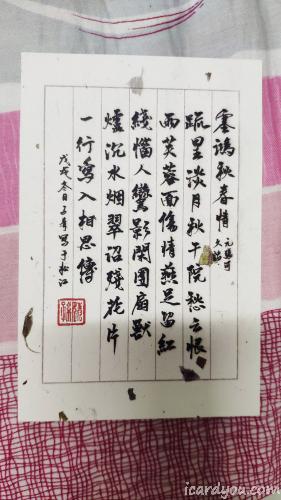 塞鴻秋春情
元張可
久
疏星淡月秋千院愁云恨
雨芙蓉面傷情燕足留紅
綫惱人鸞影閑團扇獸
爐沉水烟翠沼殘花片
一行寫入相思傳
戊戌冬日子寫于松江
icardyou.com